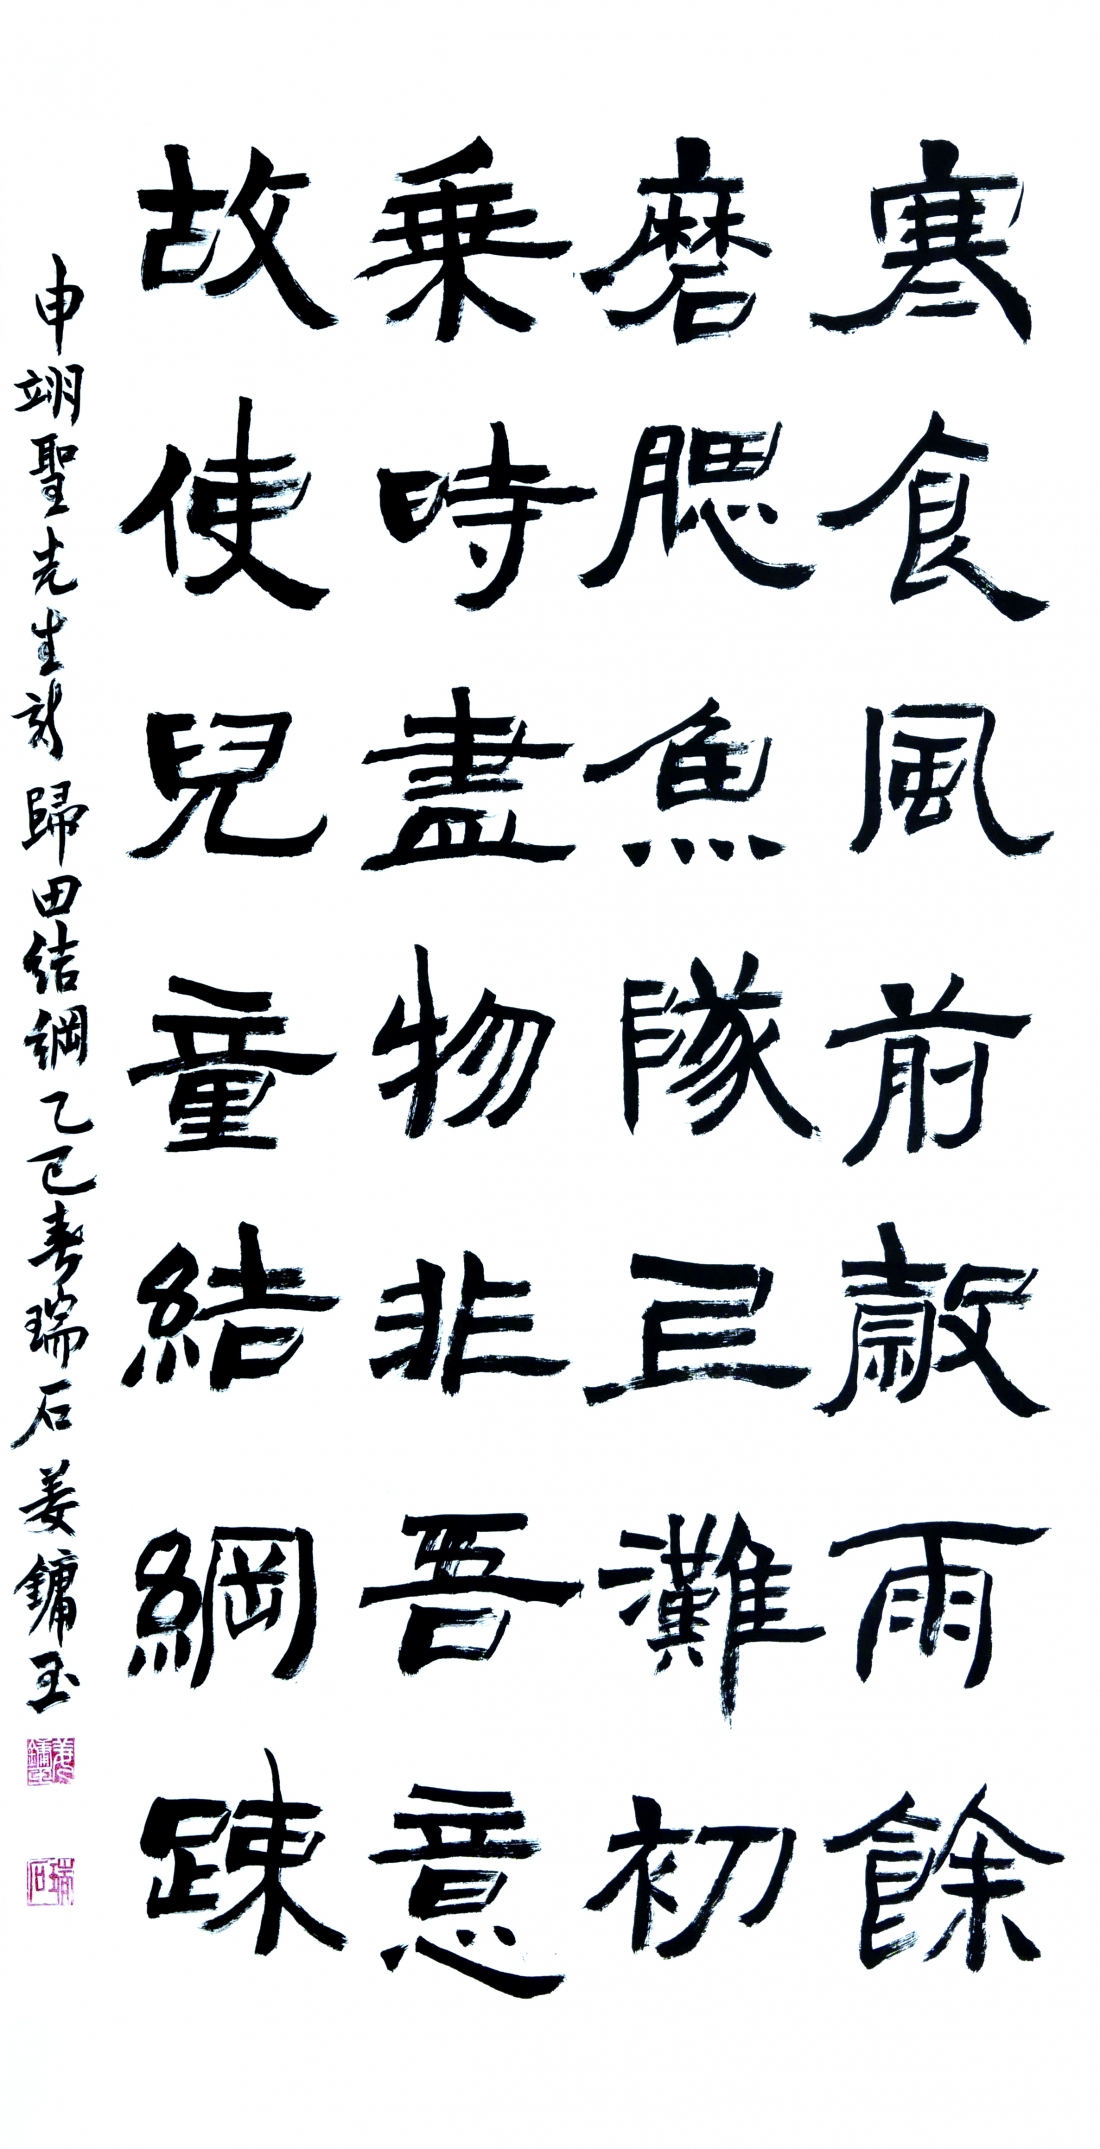 寒食風前穀雨餘
磨腮魚隊上灘初
乘時盡物非吾意
故使兒童結網踈
申翊聖先生詩歸田結網乙巳春瑞石姜鏞玉
姜鏞玉
瑞石